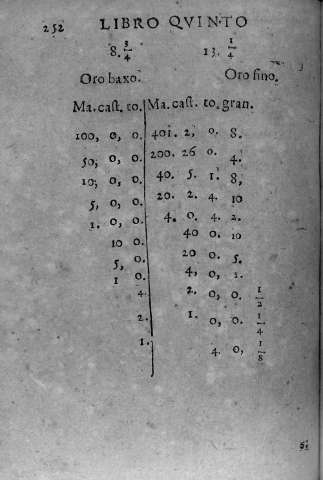 252 LIBRO QVINTO
8. 3/4 13. 1/4
Oro baxo. Oro fino.
Ma. cast. to. Ma. cast. to. gran.
100, 0, 0. 401. 2, 0. 8.
50, 0, 0. 200. 26 0. 4.
10, 0, 0. 40. 5. 1. 8,
5, 0, 0. 20. 2. 4. 10
1. 0, 0. 4. 0. 4. 2.
10 0. 40 0. 10
5, 0. 20 0. 5.
1 0. 4, 0, 1.
4. 2. 0, 0. 1/2
2. 1. 0, 0. 1/4
1. 4. 0, 1/8
Si